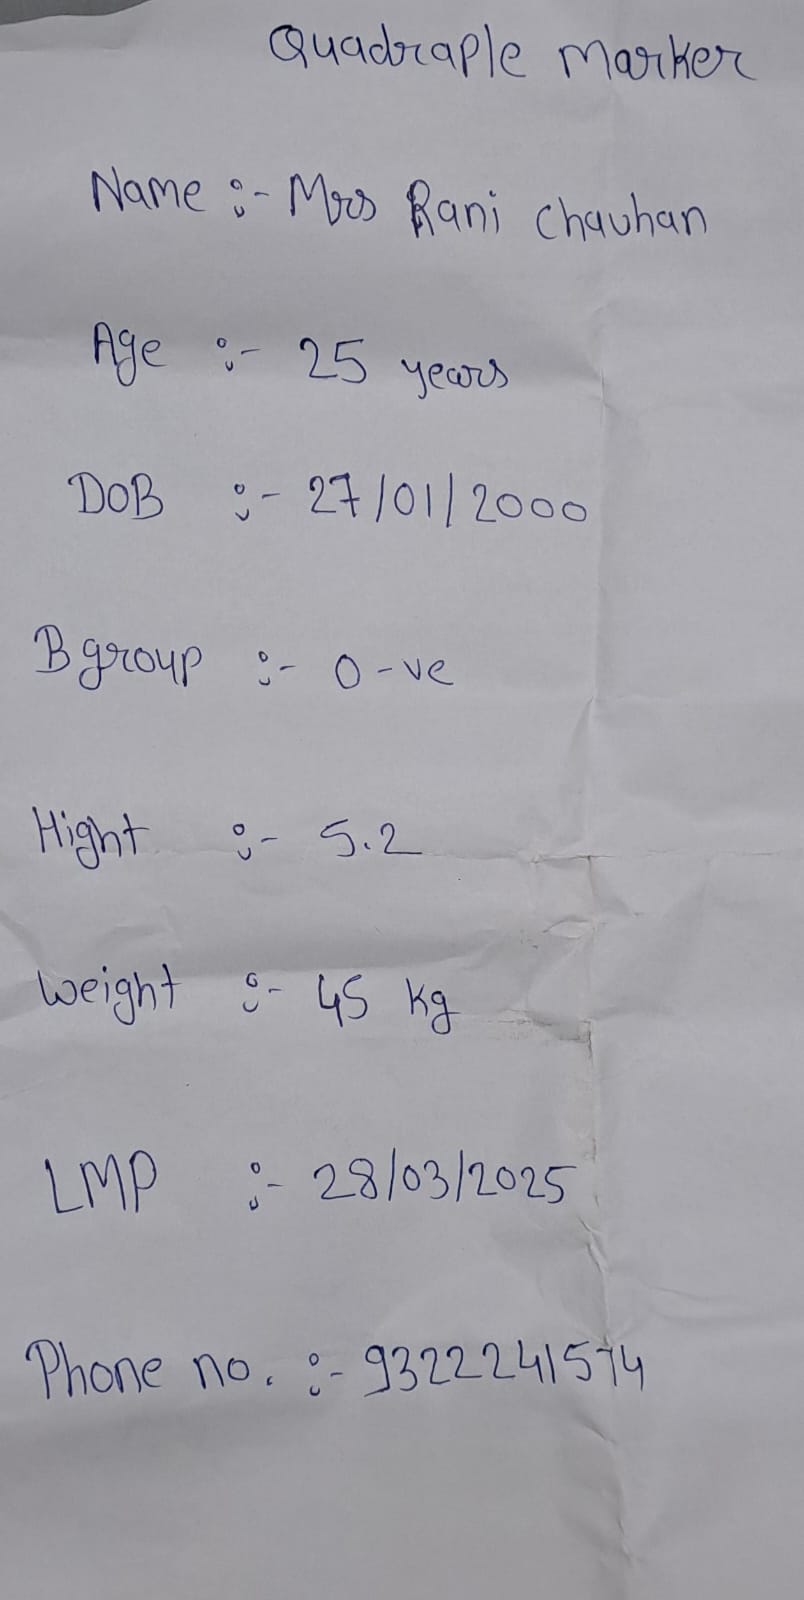 Quadraple Marker
Name :- Mrs Rani Chauhan
Age :- 25 years
DOB :- 27/01/2000
B group :- O -ve
Hight :- 5.2
Weight :- 45 kg
LMP :- 28/03/2025
Phone no. :- 9322241574